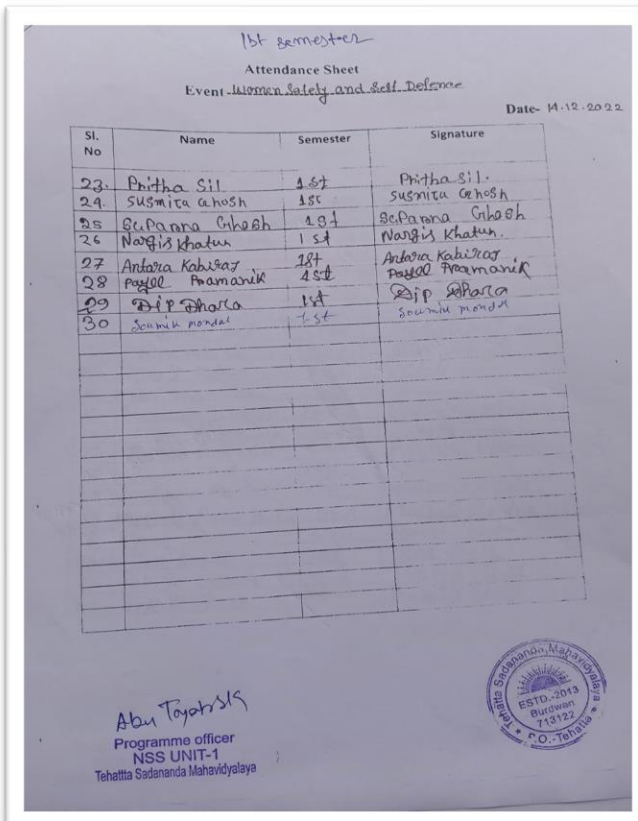 1st semester
Attendance Sheet
Event-Women Safety and Self Defence
Date- 14.12.2022
Sl. No Name Semester Signature
23. Pritha Sil 1st Pritha Sil.
24. Susmita Ghosh 1st Susmita Ghosh
25 Suparna Ghosh 1st Suparna Ghosh
26 Nargis Khatun 1st Nargis Khatun.
27 Antara Kabiraj 1st Antara Kabiraj
28 Payel Pramanik 1st Payel Pramanik
29 Dip Dhara 1st Dip Dhara
30 Soumik mondal 1st Soumik mondal
Abu
Programme officer
NSS UNIT-1
Tehattta Sadananda Mahavidyalaya
Tehatta Sadananda Mahavidyalaya
ESTD.-2013
Burdwan
713122
P.O.-Tehatta